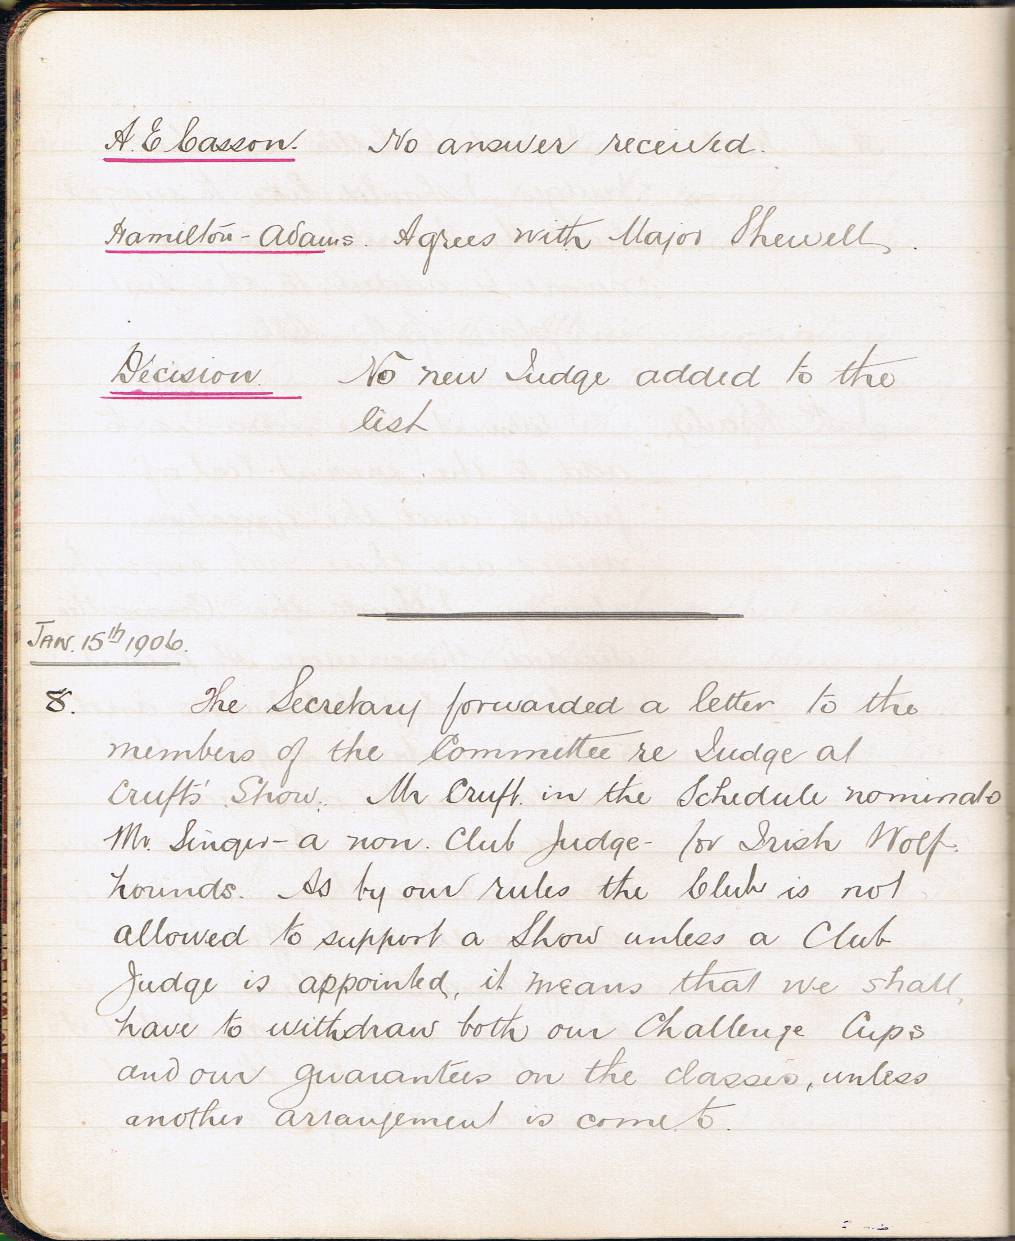 A. E. Casson. No answer received.
Hamilton-Adams. Agrees with Major Shewell.
Decision. No new Judge added to the
list
Jan. 15th 1906.
8. The Secretary forwarded a letter to the
members of the Committee re Judge at
Cruft's Show. Mr Cruft in the Schedule nominats
Mr. Singer - a non. Club Judge - for Irish Wolf-
hounds. As by our rules the Club is not
allowed to support a Show unless a Club
Judge is appointed, it means that we shall,
have to withdraw both our Challenge Cups
and our guarantees on the classes, unless
another arrangement is come to.